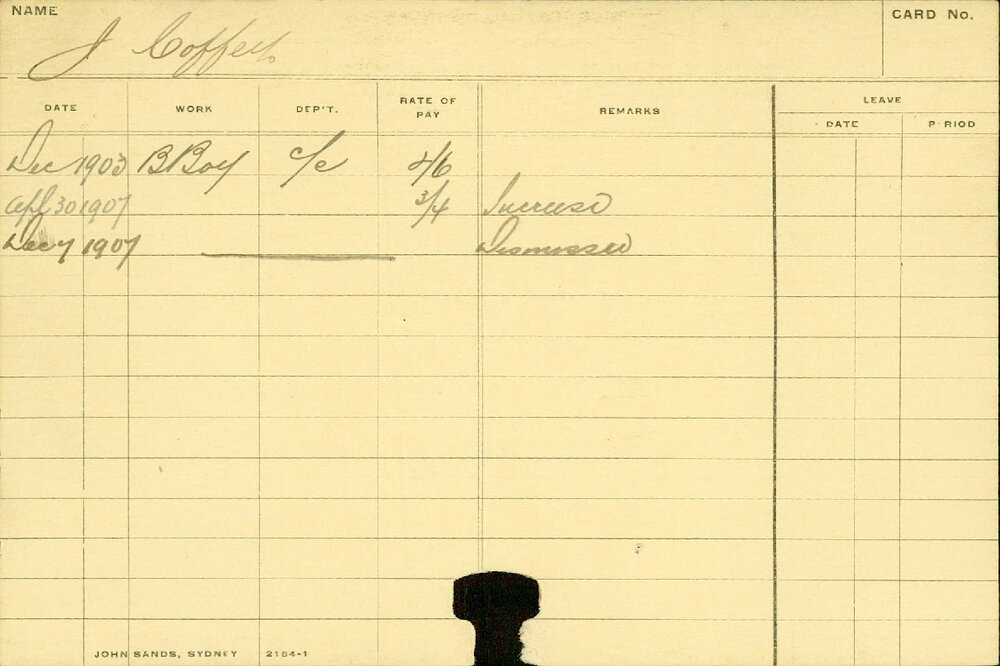 NAME
CARD No.
J Coffey
DATE WORK DEP'T. RATE OF PAY REMARKS LEAVE
DATE P RIOD
Dec 1903 B Boy c/c 2/6
Apl 30 1907 3/4 Increase
Dec 7 1907 Dismissed
JOHN SANDS, SYDNEY 2154-1